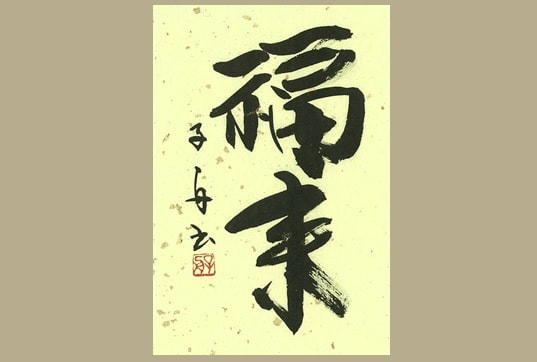 福来
子舟书